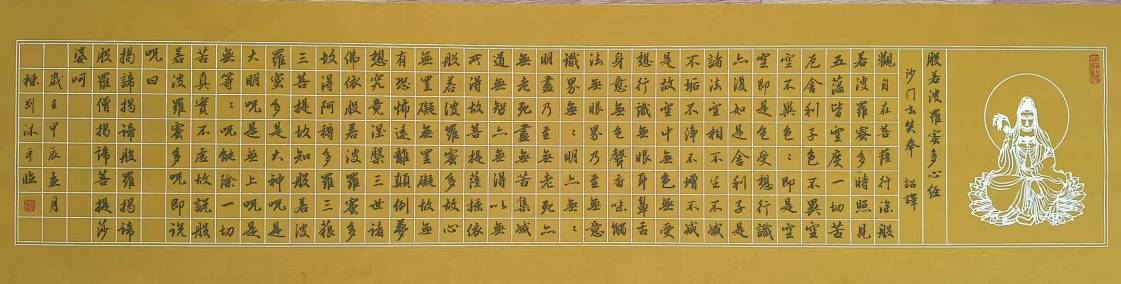 般若波羅蜜多心经
沙门玄奘奉 詔譯
觀自在菩薩行深般
若波羅蜜多時照見
五蕴皆空度一切苦
厄舍利子色不異空
空不異色〻即是空
空即是色受想行識
亦復如是舍利子是
諸法空相不生不滅
不垢不淨不增不減
是故空中無色無受
想行識無眼耳鼻舌
身意無色聲香味觸
法無眼界乃至無意
識界無〻明亦無〻
明盡乃至無老死亦
無老死盡無苦集滅
道無智亦無得以無
所得故菩提薩埵依
般若波羅蜜多故心
無罣礙無罣礙故無
有恐怖遠離顛倒夢
想究竟涅槃三世諸
佛依般若波羅蜜多
故得阿耨多羅三藐
三菩提故知般若波
羅蜜多是大神呪是
大明呪是無上呪是
無等〻呪能除一切
苦真實不虛故說般
若波羅蜜多呪即說
呪曰
揭諦揭諦般羅揭諦
般羅僧揭諦菩提莎
婆呵
歲在甲辰孟月
沐手臨